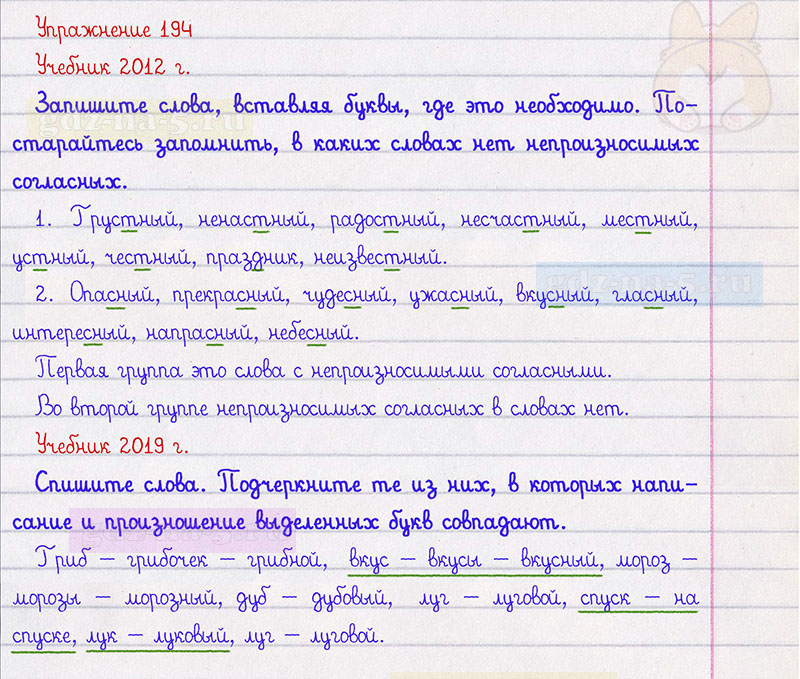 Упражнение 194
Учебник 2012 г.
Запишите слова, вставляя буквы, где это необходимо. По-
старайтесь запомнить, в каких словах нет непроизносимых
согласных.
1. Грустный, ненастный, радостный, несчастный, местный,
устный, честный, праздник, неизвестный.
2. Опасный, прекрасный, чудесный, ужасный, вкусный, гласный,
интересный, напрасный, небесный.
Первая группа это слова с непроизносимыми согласными.
Во второй группе непроизносимых согласных в словах нет.
Учебник 2019 г.
Спишите слова. Подчеркните те из них, в которых напи-
сание и произношение выделенных букв совпадают.
Гриб – грибочек – грибной, вкус – вкусы – вкусный, мороз –
морозы – морозный, дуб – дубовый, луг – луговой, спуск – на
спуске, лук – луковый, луг – луговой.
gdz-na-5.ru
gdz-na-5.ru
gdz-na-5.ru